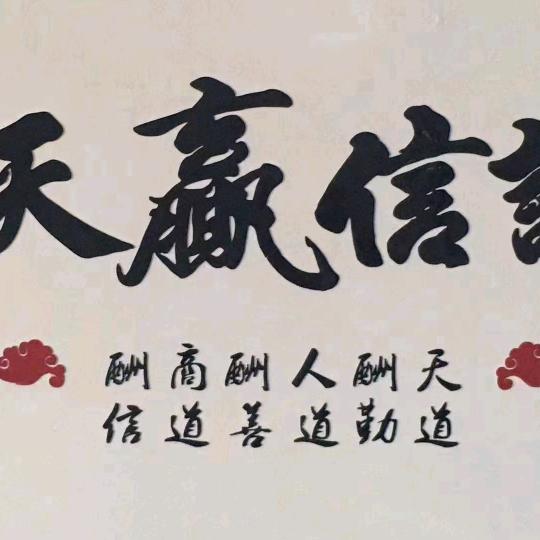 信贏天
天道
酬勤
人道
酬善
商道
酬信